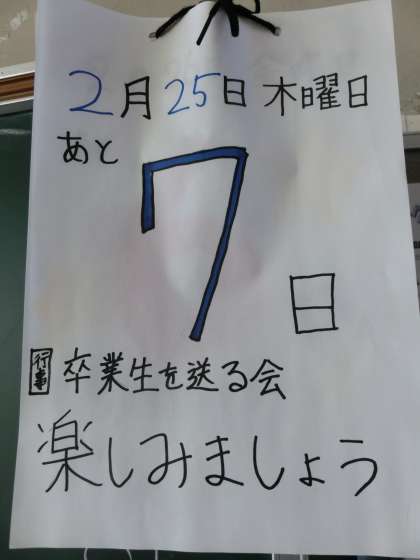 2月25日木曜日
あと
7日
行事 卒業生を送る会
楽しみましょう